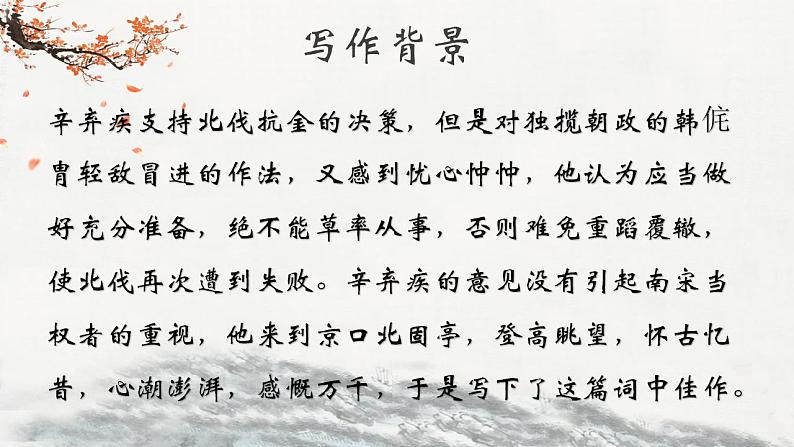 写作背景
辛弃疾支持北伐抗金的决策，但是对独揽朝政的韩侂
胄轻敌冒进的作法，又感到忧心忡忡，他认为应当做
好充分准备，绝不能草率从事，否则难免重蹈覆辙，
使北伐再次遭到失败。辛弃疾的意见没有引起南宋当
权者的重视，他来到京口北固亭，登高眺望，怀古忆
昔，心潮澎湃，感慨万千，于是写下了这篇词中佳作。